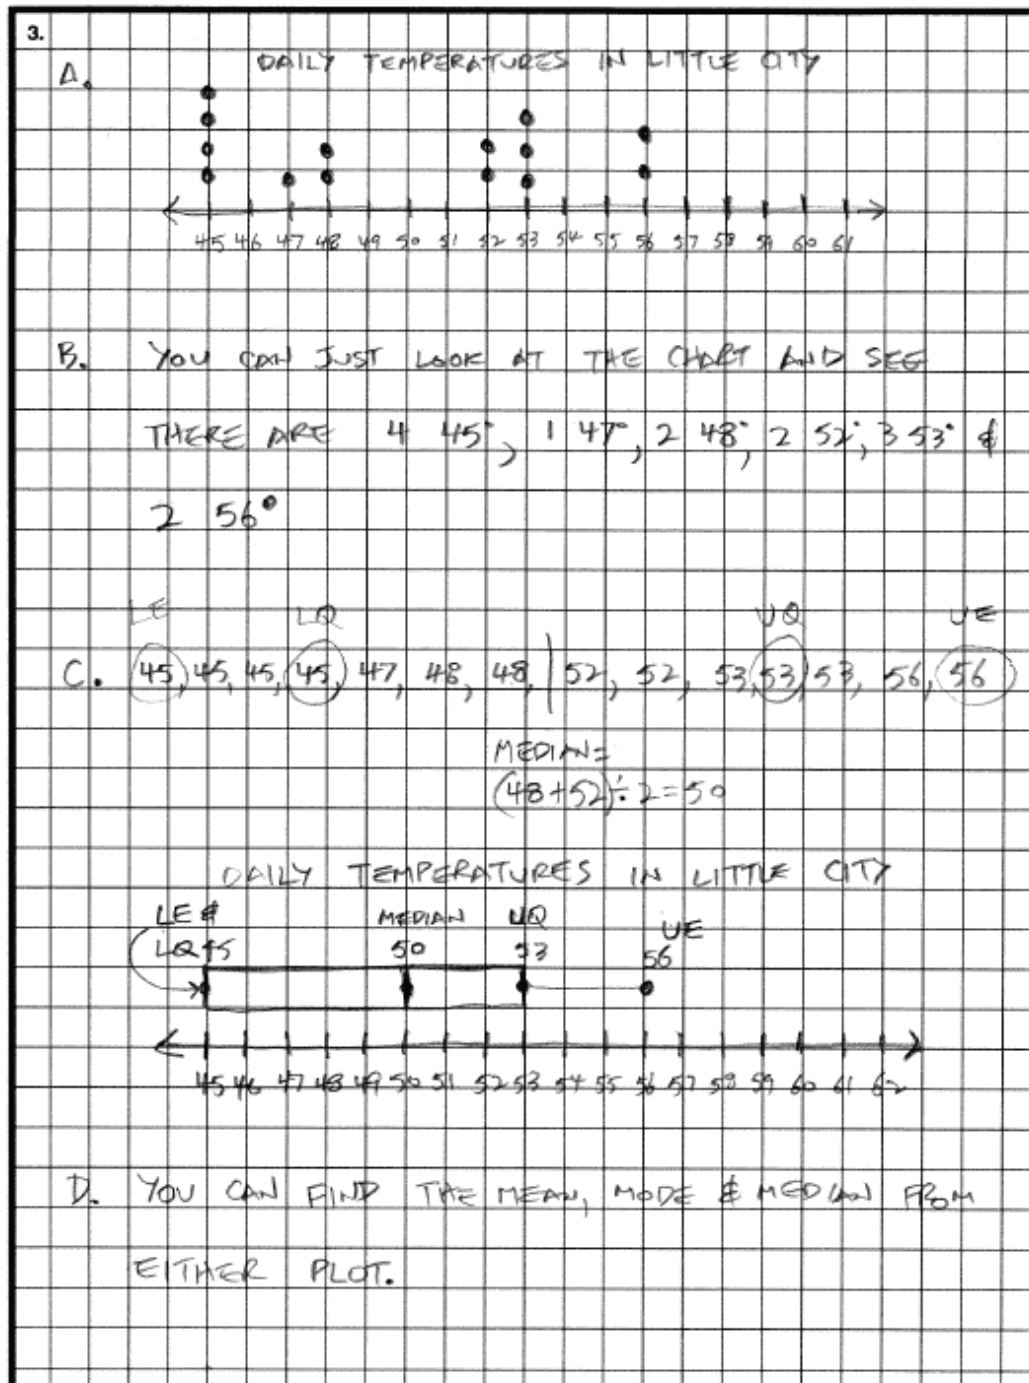 3.
A. DAILY TEMPERATURES IN LITTLE CITY
45 46 47 48 49 50 51 52 53 54 55 56 57 58 59 60 61
B. YOU CAN JUST LOOK AT THE CHART AND SEE
THERE ARE 4 45°, 1 47°, 2 48°, 2 52°, 3 53° &
2 56°
LE LQ UQ UE
C. 45, 45, 45, 45, 47, 48, 48, | 52, 52, 53, 53, 53, 56, 56
MEDIAN=
(48+52)÷2=50
DAILY TEMPERATURES IN LITTLE CITY
LE & MEDIAN UQ UE
LQ 45 50 53 56
45 46 47 48 49 50 51 52 53 54 55 56 57 58 59 60 61 62
D. YOU CAN FIND THE MEAN, MODE & MEDIAN FROM
EITHER PLOT.